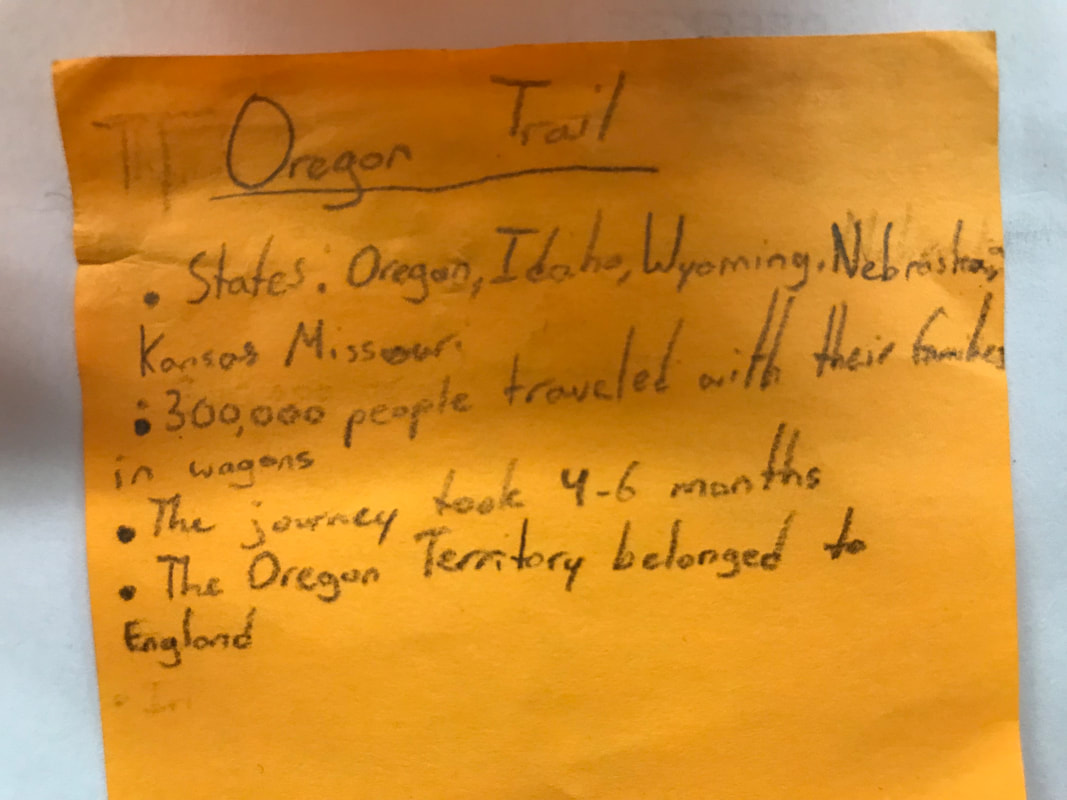 Oregon Trail
• States: Oregon, Idaho, Wyoming, Nebraska,
Kansas Missouri
• 300,000 people traveled with their families
in wagons
• The journey took 4-6 months
• The Oregon Territory belonged to
England
• In